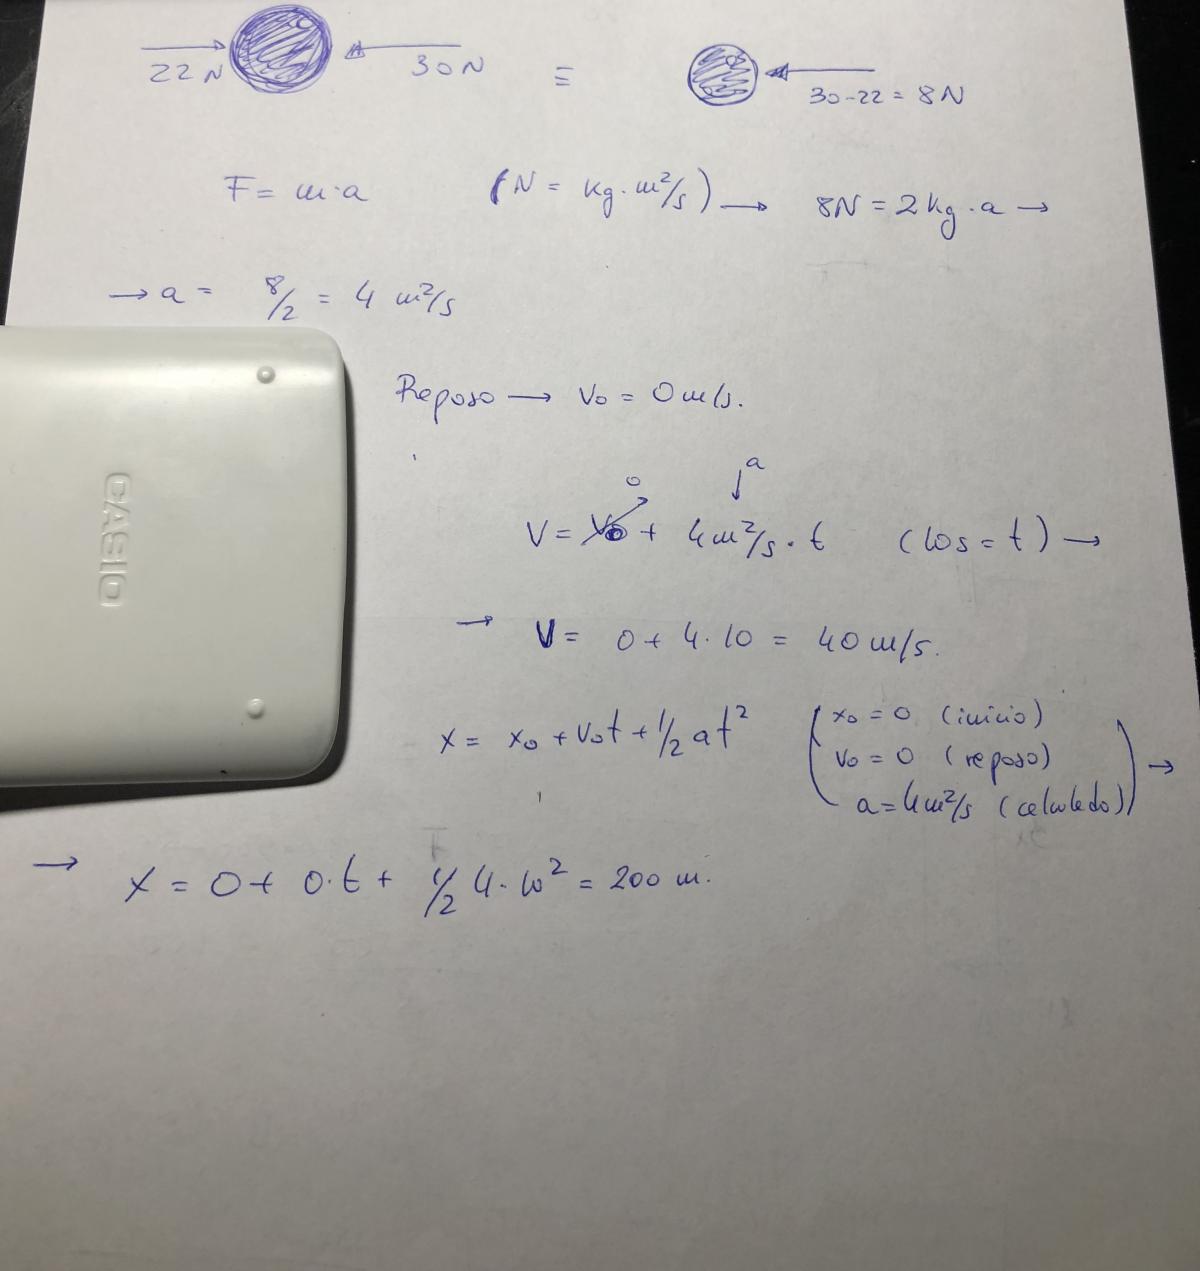 22 N 30 N ≡ 30-22 = 8N
F = m·a (N = kg·m²/s) → 8N = 2kg·a →
→ a = 8/2 = 4 m²/s
Reposo → V₀ = 0 m/s.
0 a
V = V₀ + 4m²/s · t (10s = t) →
→ V = 0 + 4·10 = 40 m/s.
x = x₀ + V₀t + 1/2 at² (x₀ = 0 (inicio)
V₀ = 0 (reposo)
a = 4m²/s (calculado)) →
→ X = 0 + 0·t + 1/2 4·10² = 200 m.
CASIO